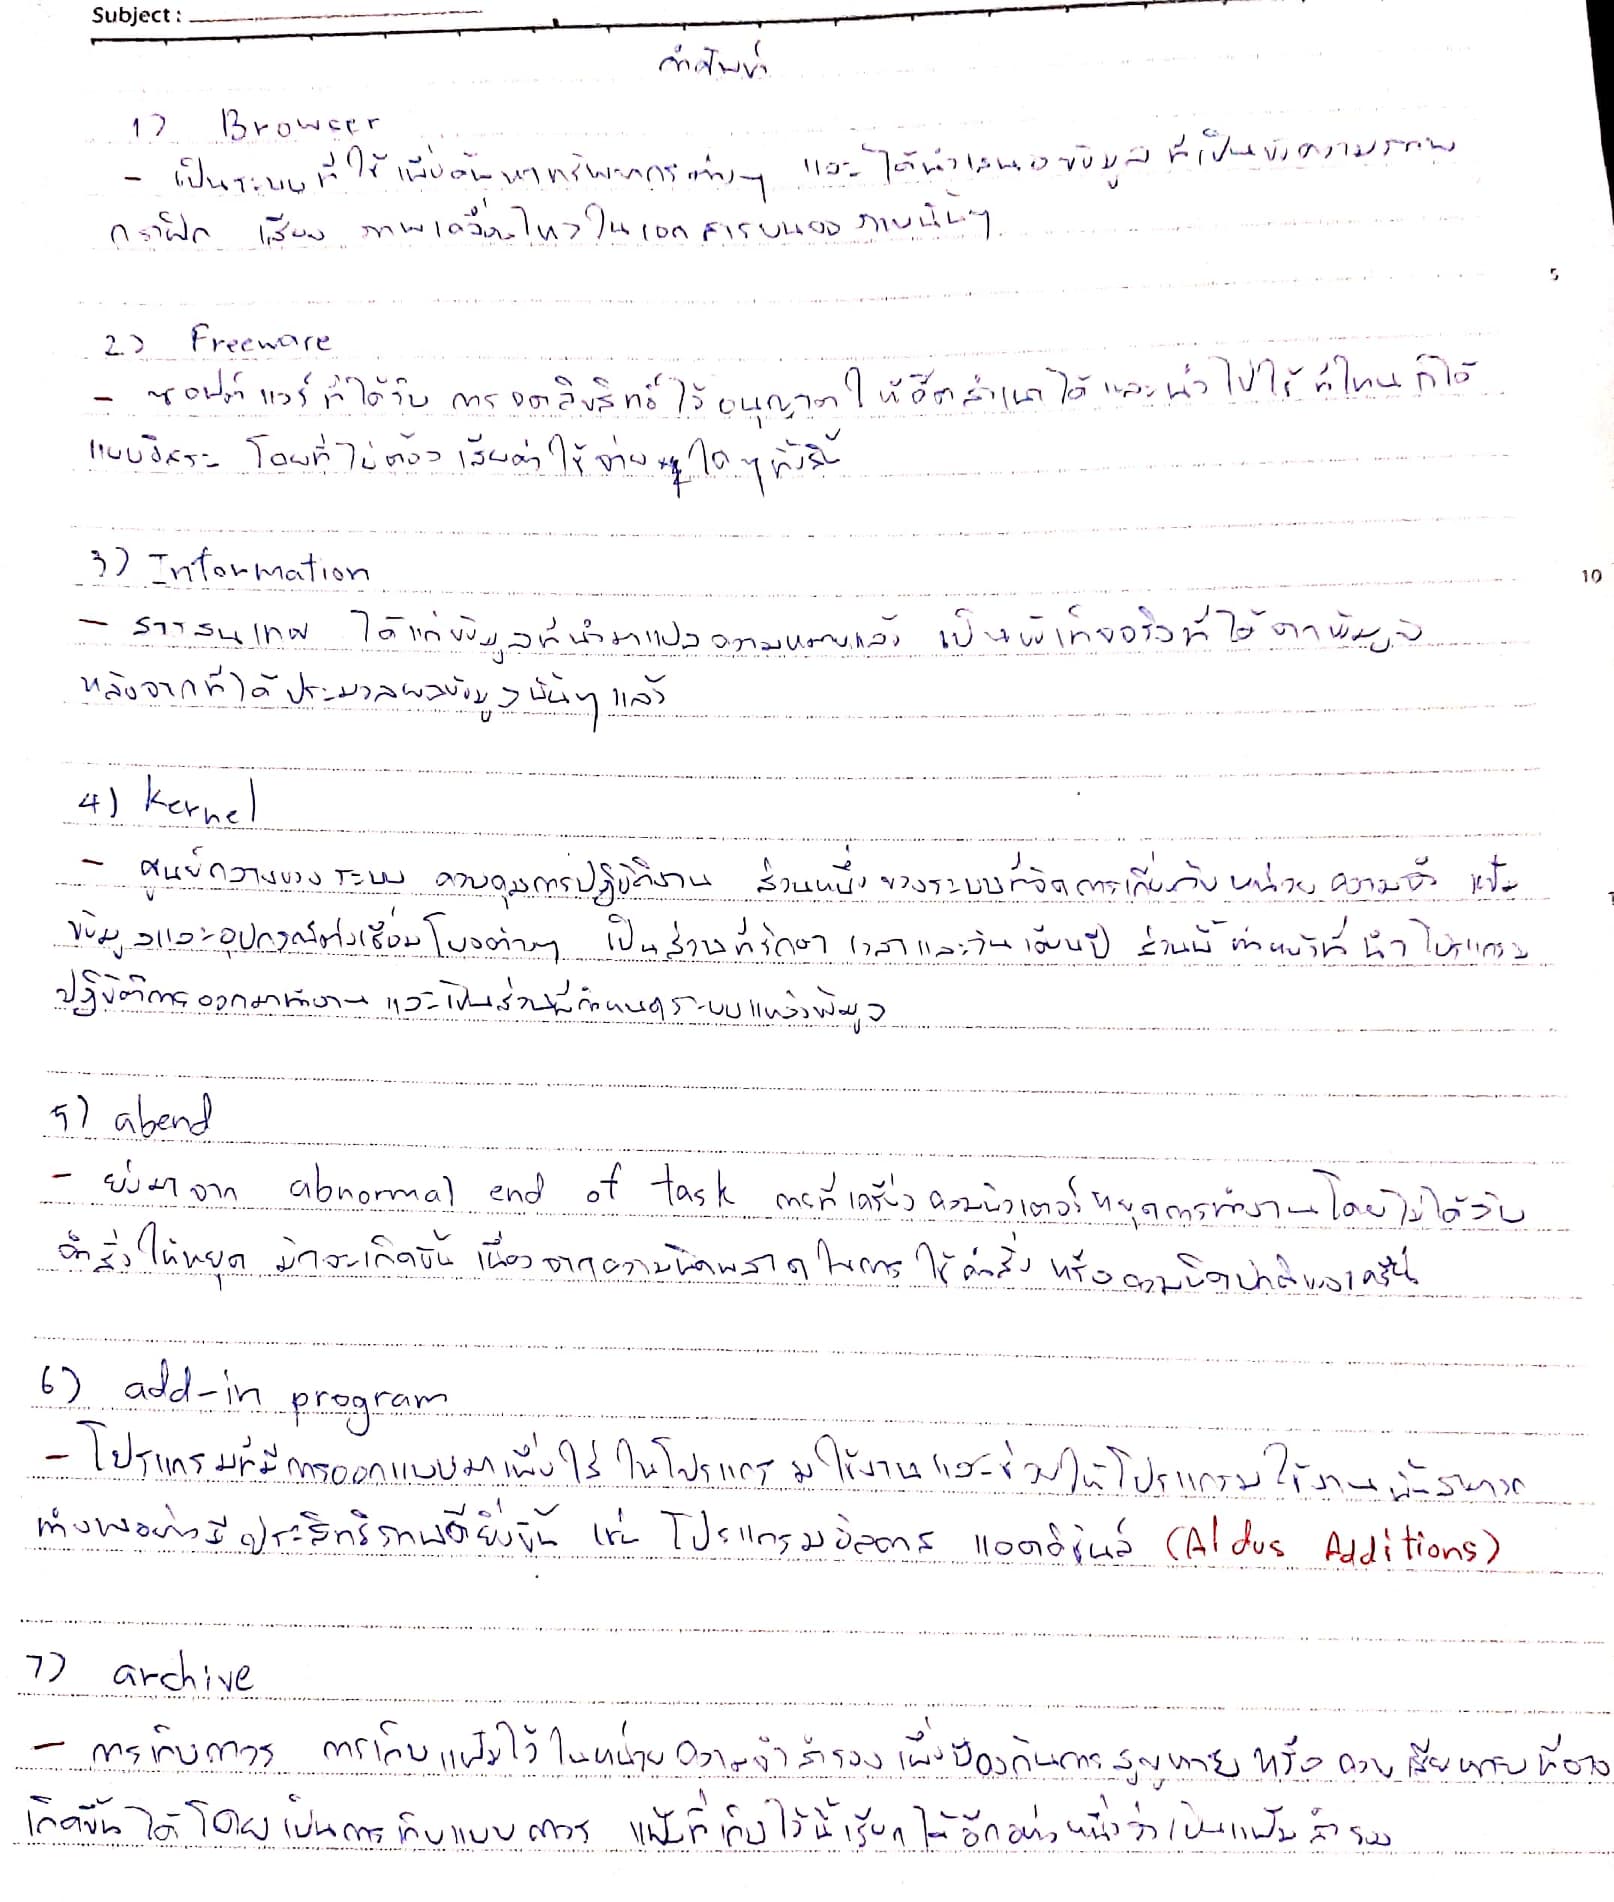 Subject :
คำศัพท์
1) Browser
- เป็นระบบที่ใช้เพื่อค้นหาทรัพยากรต่างๆ และได้นำเสนอข้อมูลที่เป็นข้อความภาพ
กราฟิก เสียง ภาพเคลื่อนไหวในเอกสารบนจอภาพนั้นๆ
5
2) Freeware
- ซอฟต์แวร์ที่ได้รับการจดลิขสิทธิ์ไว้อนุญาตให้จัดสำเนาได้และนำไปใช้ที่ไหนก็ได้
แบบอิสระ โดยที่ไม่ต้องเสียค่าใช้จ่ายใดๆทั้งสิ้น
3) Information
10
- สารสนเทศ ได้แก่ข้อมูลที่นำมาแปลความหมายแล้ว เป็นข้อเท็จจริงที่ได้จากข้อมูล
หลังจากที่ได้ประมวลผลข้อมูลนั้นๆแล้ว
4) Kernel
- ศูนย์กลางของระบบ ควบคุมการปฏิบัติงาน ส่วนหนึ่งของระบบที่จัดการเกี่ยวกับหน่วยความจำ แฟ้ม
ข้อมูลและอุปกรณ์ต่อเชื่อมโยงต่างๆ เป็นส่วนที่รักษาเวลาและวันเดือนปี ส่วนนี้ทำหน้าที่นำโปรแกรม
ปฏิบัติการออกมาทำงาน และเป็นส่วนที่กำหนดระบบแหล่งข้อมูล
5) abend
- ย่อมาจาก abnormal end of task การที่เครื่องคอมพิวเตอร์หยุดการทำงานโดยไม่ได้รับ
คำสั่งให้หยุด มักจะเกิดขึ้นเนื่องจากความผิดพลาดในการใช้คำสั่ง หรือความผิดปกติของเครื่อง
6) add-in program
- โปรแกรมที่มีการออกแบบมาเพื่อใช้ในโปรแกรมใช้งานและช่วยให้โปรแกรมใช้งานนั้นสามารถ
ทำงานอย่างมีประสิทธิภาพดียิ่งขึ้น เช่น โปรแกรมอัลดาส แอดดิชันส์ (Aldus Additions)
7) archive
- การเก็บถาวร การเก็บแฟ้มไว้ในหน่วยความจำสำรองเพื่อป้องกันการสูญหาย หรือความเสียหายที่อาจ
เกิดขึ้นได้โดยเป็นการเก็บแบบถาวร แฟ้มที่เก็บไว้นี้เรียกได้อีกอย่างหนึ่งว่าเป็นแฟ้มสำรอง